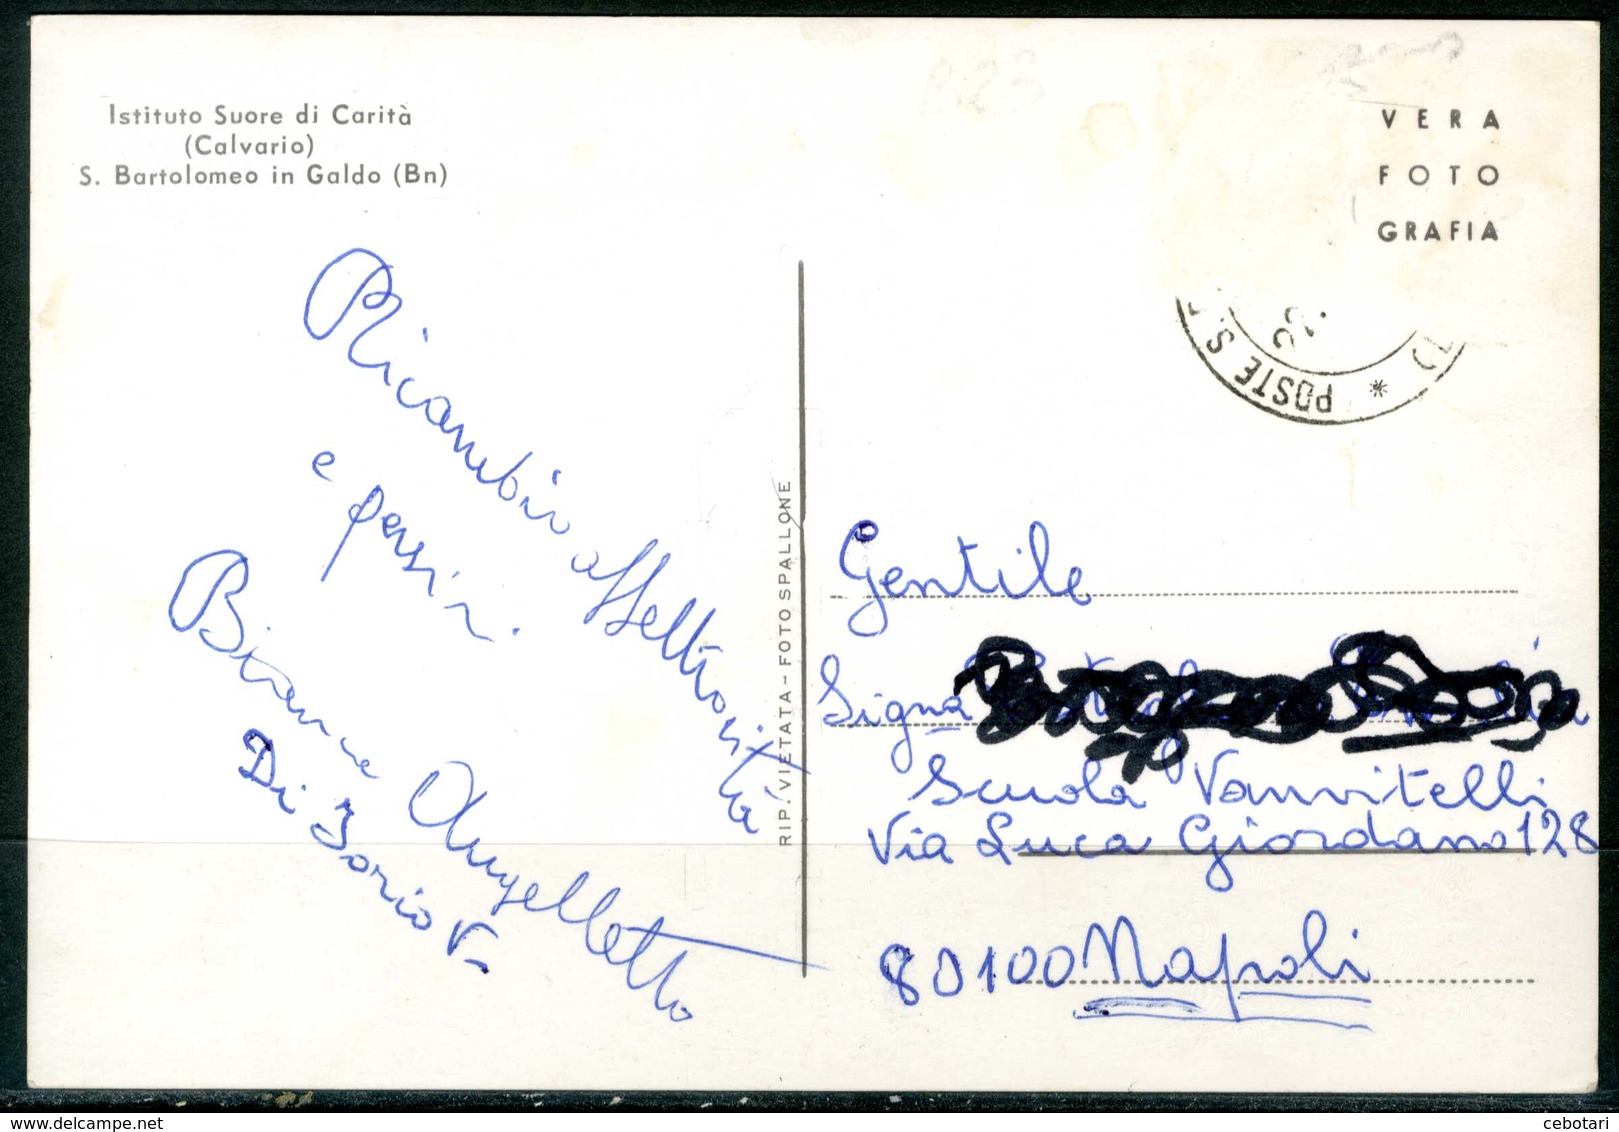 Istituto Suore di Carità
(Calvario)
S. Bartolomeo in Galdo (Bn)
B23
VERA
FOTO
GRAFIA
POSTE S.
Ricambio affettuosità
e pensieri
Bianca Angelletto
Di Iorio V.
RIP. VIETATA - FOTO SPALLONE
Gentile
Sig.na
Scuola Vanvitelli
Via Luca Giordano 128
80100 Napoli
cebotari